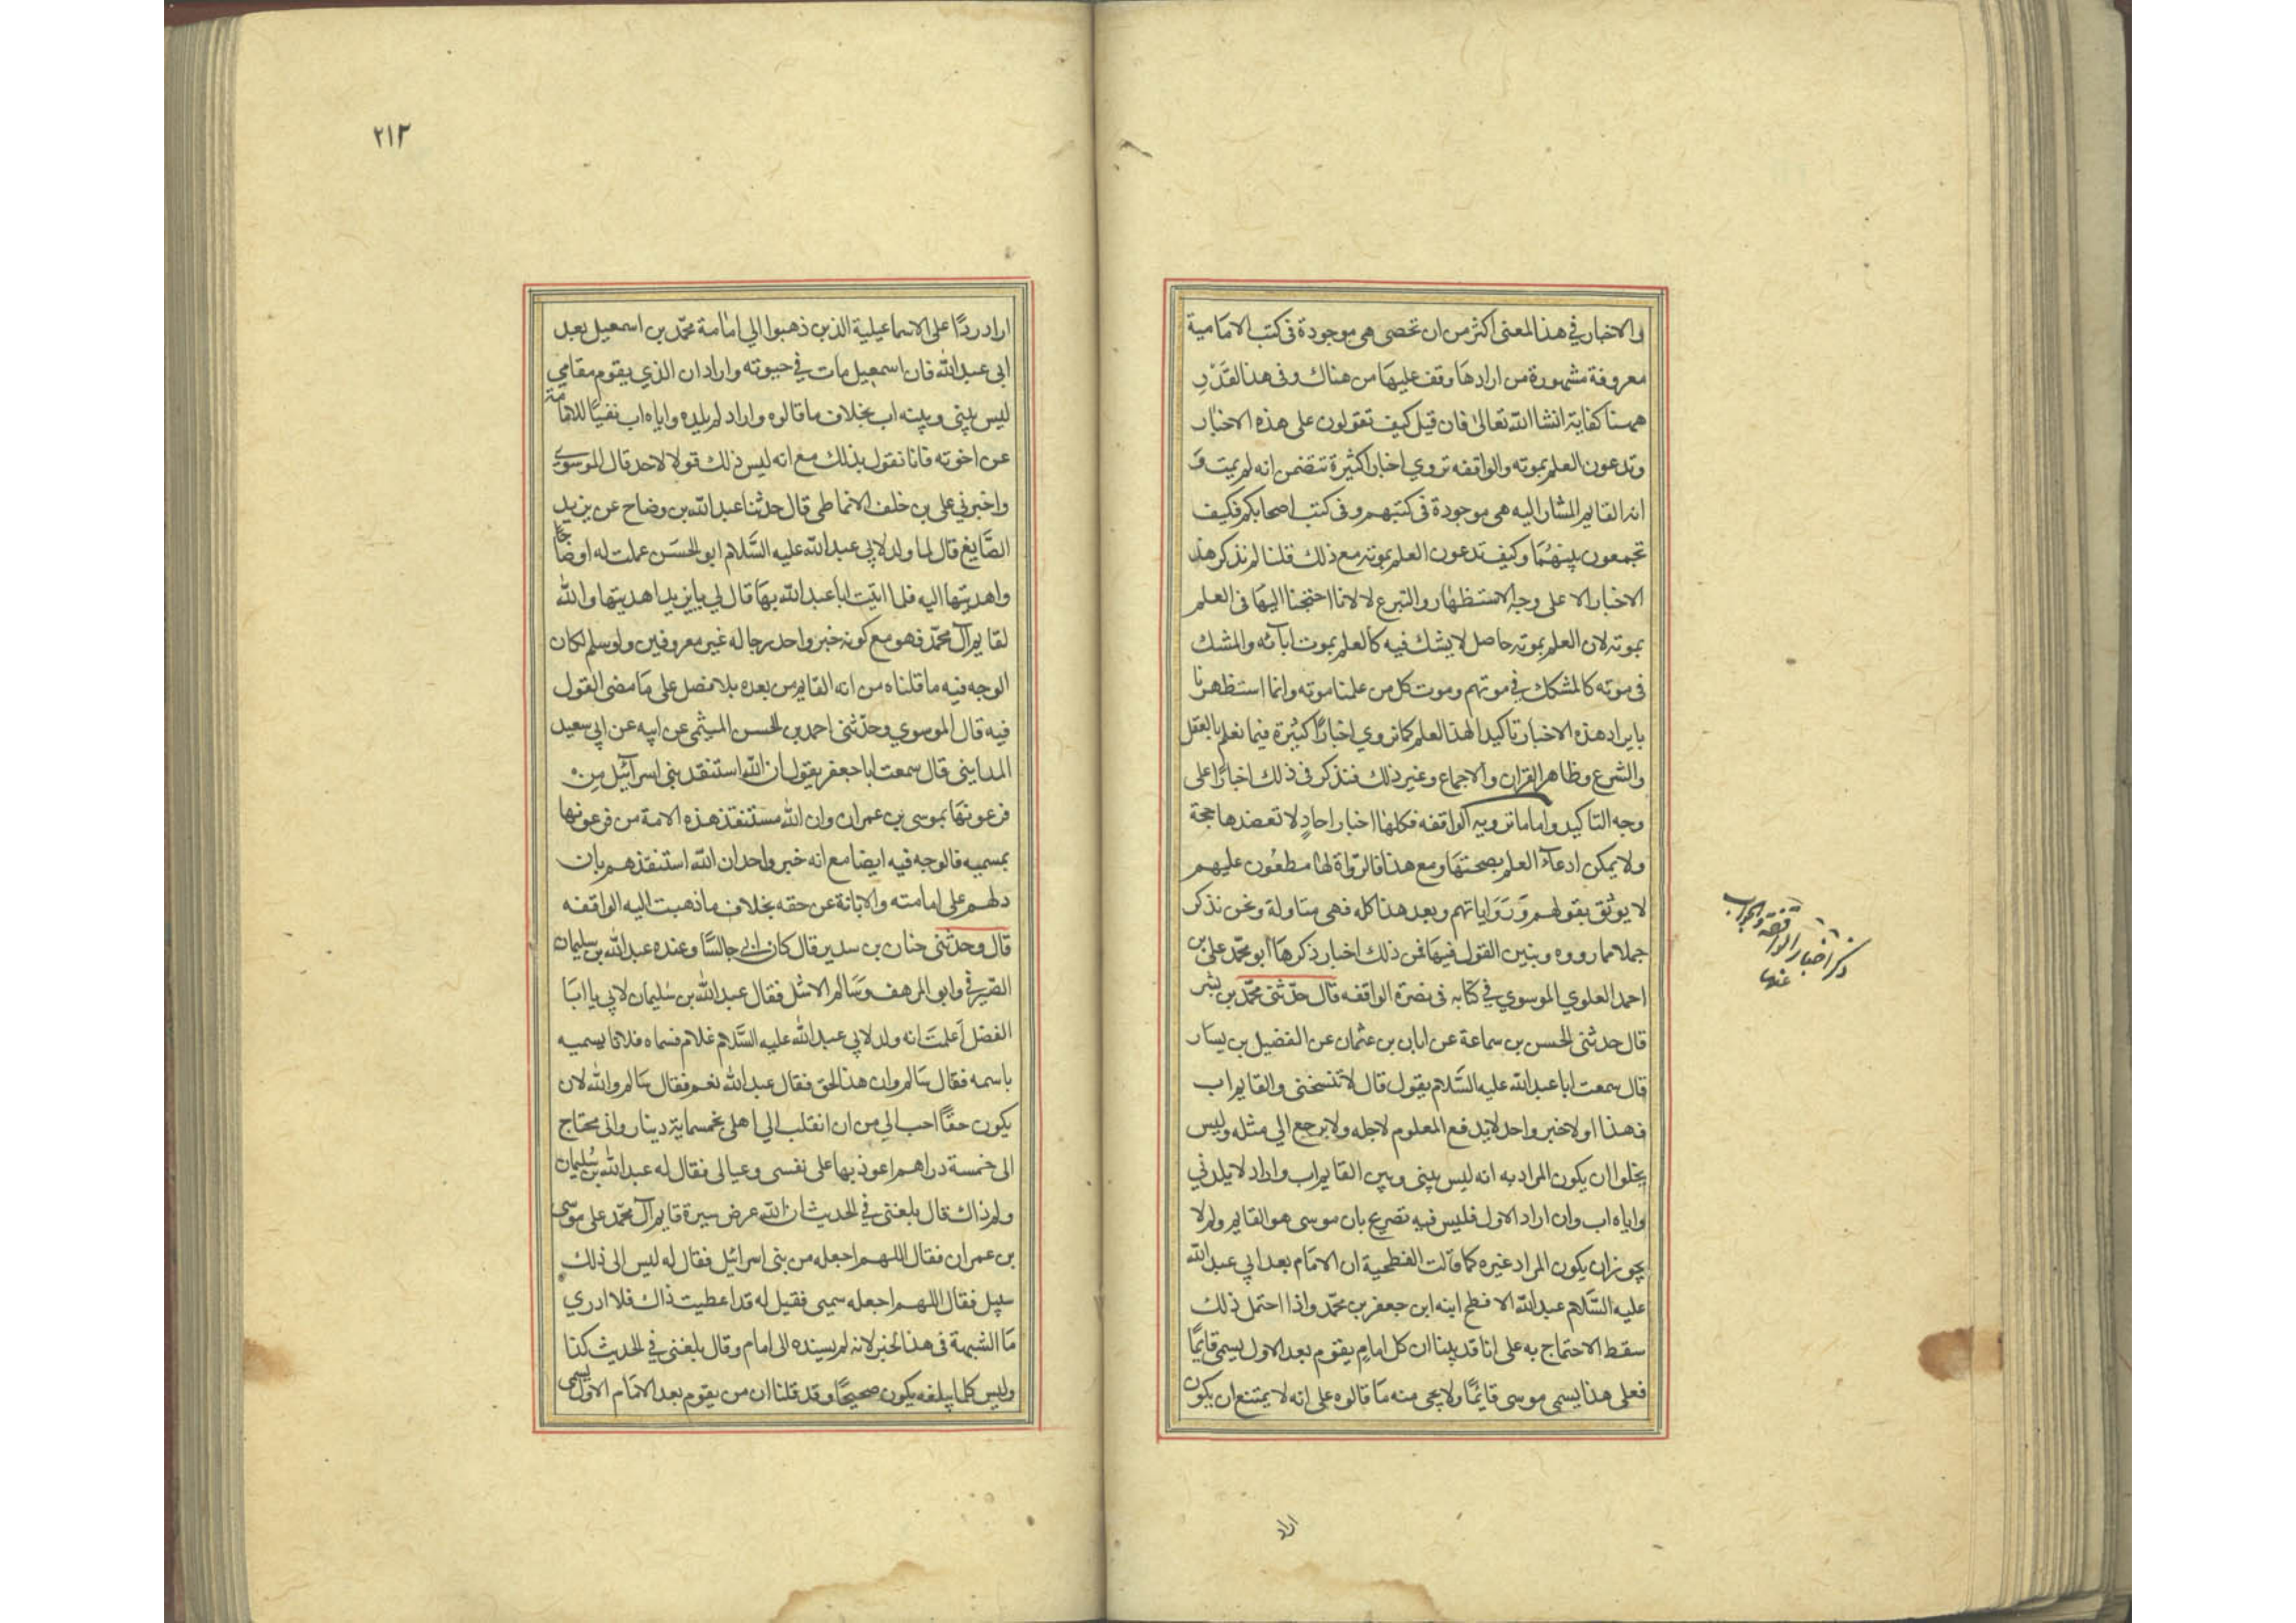 والاخبار في هذا المعنى اكثر من ان تحصى هى موجودة فى كتب الامامية
معروفة مشهورة من ارادها وقف عليها من هناك وفى هذا القدر
ههنا كفاية انشا الله تعالى فان قيل كيف تعولون على هذه الاخبار
وتدعون العلم بموته والواقفه تروي اخبارا كثيرة تتضمن انه لم يمت و
انه القايم المشار اليه هى موجودة فى كتبهم وفى كتب اصحابكم فكيف
تجمعون بينهما وكيف تدعون العلم بموته مع ذلك قلنا لم نذكر هذه
الاخبار الا على وجه الاستظهار والتبرع لا لانا احتجنا اليها فى العلم
بموته لان العلم بموته حاصل لا يشك فيه كالعلم بموت ابآئه والمشك
فى موته كالمشكك في موتهم وموت كل من علمنا موته وانما استظهرنا
بايراد هذه الاخبار تاكيدا لهذا العلم كما نروي اخبارًا كثيرة فيما نعلم بالعقل
والشرع وظاهر القران والاجماع وغير ذلك فنذكر فى ذلك اخبارًا على
وجه التاكيد واما ما ترويه الواقفه فكلها اخبار احادٍ لا تعضدها حجة
ولا يمكن ادعآء العلم بصحتها ومع هذا فالرّواة لها مطعُون عليهم
لا يوثق بقولهم وَرَوَاياتهم وبعد هذا كله فهى متاولة ونحن نذكر
جملا مما رووه ونبين القول فيها فمن ذلك اخبار ذكرها ابو محمّد على بن
احمد العلوي الموسوي في كتابه فى نصرة الواقفه قال حدّثنى محمّد بن بشر
قال حدثنى الحسن بن سماعة عن ابان بن عثمان عن الفضيل بن يسار
قال سمعت ابا عبدالله عليه السَّلام يقول قال لا تنسخنى والقايم اب
فهذا اولا خبر واحد لا يدفع المعلوم لاجله ولا يرجع الي مثله وليس
يخلوا ان يكون المراد به انه ليس بينى وبين القايم اب واراد لا يلدني
واياه اب وان اراد الاول فليس فيه تصريح بان موسى هو القايم ولم لا
يجوز ان يكون المراد غيره كما قالت الفطحية ان الامام بعد ابي عبدالله
عليه السَّلام عبدالله الافطح ابنه ابن جعفر بن محمّد واذا احتمل ذلك
سقط الاحتجاج به على انا قد بينا ان كل امامٍ يقوم بعد الاول يسمى قايمًا
فعلى هذا يسمى موسى قايمًا ولا يجى منه ما قالوه على انه لا يمتنع ان يكون
ذكر اخبار الواقفة والجواب
عنها
اراد
٢١٣
اراد ردًا على الاسماعيلية الذين ذهبوا الي امامة محمّد بن اسمعيل بعد
ابى عبدالله فان اسمعيل مات في حيوته واراد ان الذي يقوم مقامي
ليس بينى وبينه اب بخلاف ما قالوه واراد لم يلده واياه اب نفيًا للامامة
عن اخوته فانا نقول بذلك مع انه ليس ذلك قولا لاحد قال الموسوى
واخبرني على بن خلف الانماطى قال حدثنا عبدالله بن وضاح عن يزيد
الصَّايغ قال لما ولد لابي عبدالله عليه السَّلام ابو الحسَن عملت له اوضاحًا
واهديتها اليه فلما اتيت ابا عبدالله بها قال لي يا يزيد اهديتها والله
لقايم آل محمّد فهو مع كونه خبر واحد رجاله غير معروفين ولو سلم لكان
الوجه فيه ما قلناه من انه القايم من بعده بلا فصل على ما مضى القول
فيه قال الموسوي وحدّثنى احمد بن الحسن الميثمى عن ابيه عن ابي سعيد
المداينى قال سمعت ابا جعفر يقول ان الله استنقذ بنى اسرآئيل من
فرعونها بموسى بن عمران وان الله مستنقذ هذه الامة من فرعونها
بسميه فالوجه فيه ايضا مع انه خبر واحد ان الله استنقذهم بان
دلهم على امامته والابانة عن حقه بخلاف ما ذهبت اليه الواقفه
قال وحدثنى حنان بن سدير قال كان ابى جالسًا وعنده عبدالله بن سليمان
الصّيرفي وابو المرهف وسالم الاشل فقال عبدالله بن سليمان لابي يا ابا
الفضل أعلمت انه ولد لابي عبدالله عليه السَّلام غلام فسماه فلانا يسميه
باسمه فقال سالم وان هذا الحق فقال عبدالله نعم فقال سالم والله لان
يكون حقًا احب الي من ان انقلب الي اهلى بخمسماية دينار وانى محتاج
الى خمسة دراهم اعوذ بها على نفسى وعيالى فقال له عبدالله بن سُليمان
ولم ذاك قال بلغنى في الحديث ان الله عرض سيرة قايم آل محمّد على موسى
بن عمران فقال اللهم اجعله من بنى اسرائيل فقال له ليس الى ذلك
سبيل فقال اللهم اجعله سميى فقيل له قد اعطيت ذاك فلا ادري
ما الشبهة فى هذا الخبر لانه لم يسنده الى امام وقال بلغنى في الحديث كذا
وليس كلما يبلغه يكون صحيحًا وقد قلنا ان من يقوم بعد الامام الاول يسمى